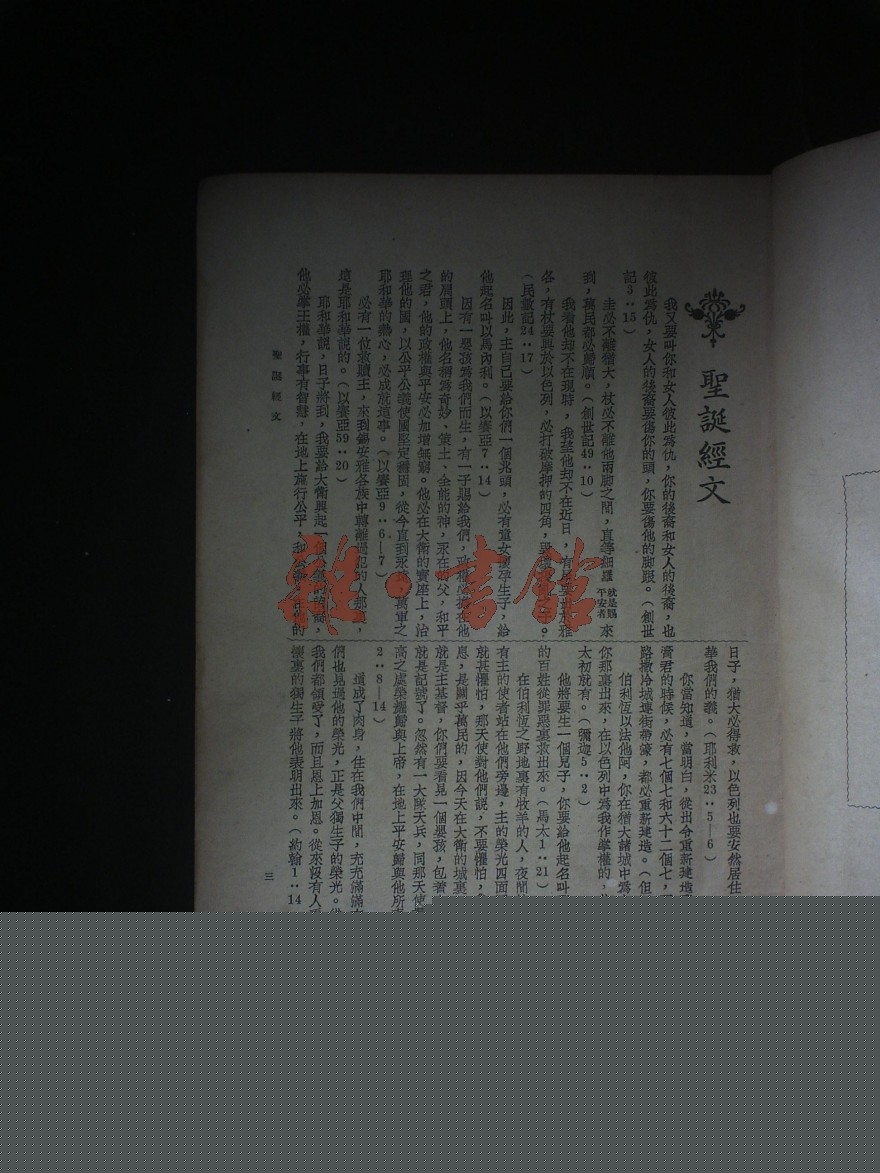 聖誕經文
我又要叫你和女人彼此爲仇，你的後裔和女人的後裔，也
彼此爲仇，女人的後裔要傷你的頭，你要傷他的脚跟。（創世
記3：15）
圭必不離猶大，杖必不離他兩脚之間，直等細羅 就是賜平安者 來
到，萬民都必歸順。（創世記49：10）
我看他却不在現時，我望他却不在近日，有星要出於雅
各，有杖要興於以色列，必打破摩押的四角，
（民數記24：17）
因此，主自己要給你們一個兆頭，必有童女懷孕生子，給
他起名叫以馬內利。（以賽亞7：14）
因有一嬰孩爲我們而生，有一子賜給我們，政權必擔在他
的肩頭上，他名稱爲奇妙、策士、全能的神，永在的父，和平
之君，他的政權與平安必加增無窮。他必在大衛的寶座上，治
理他的國，以公平公義使國堅定穩固，從今直到永遠萬軍之
耶和華的熱心，必成就這事。（以賽亞9：6—7）
必有一位救贖主，來到錫安雅各族中轉離過犯的人那裏，
這是耶和華說的。（以賽亞59：20）
耶和華說，日子將到，我要給大衛興起一個公義的苗裔，
他必掌王權，行事有智慧，在地上施行公平，和公義在他的
日子，猶大必得救，以色列也要安然居住
華我們的義。（耶利米23：5—6）
你當知道，當明白，從出令重新建造
膏君的時候，必有七個七和六十二個七，
路撒冷城連街帶濠，都必重新建造。（但
伯利恆以法他阿，你在猶大諸城中爲
你那裏出來，在以色列中爲我作掌權的，
太初就有。（彌迦5：2）
他將要生一個兒子，你要給他起名叫
的百姓從罪惡裏救出來。（馬太1：21）
在伯利恆之野地裏有牧羊的人，夜間
有主的使者站在他們旁邊，主的榮光四面
就甚懼怕，那天使對他們說，不要懼怕，
息，是關乎萬民的，因今天在大衛的城裏
就是主基督，你們要看見一個嬰孩，包着
就是記號了。忽然有一大隊天兵，同那天使
高之處榮耀歸與上帝，在地上平安歸與他所
2：8—14）
道成了肉身，住在我們中間，充充滿滿
們也見過他的榮光，正是父獨生子的榮光。
我們都領受了，而且恩上加恩。從來沒有人
懷裏的獨生子將他表明出來。（約翰1：14
聖誕經文
三
雜·書館